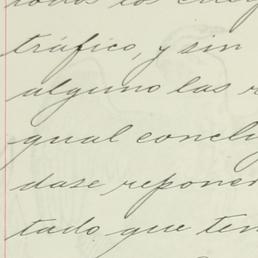 todos los
tráfico, y sin
alguno las r
gual conclu
dase reponer
tado que ten